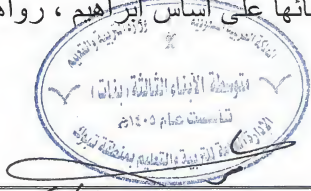 ائها على أساس ابراهيم ، رواه
المملكة العربية السعودية
وزارة التربية والتعليم
متوسطة الأبناء الثالثة (بنات)
تأسست عام ١٤٠٥هـ
الإدارة العامة للتربية والتعليم بمنطقة تبوك